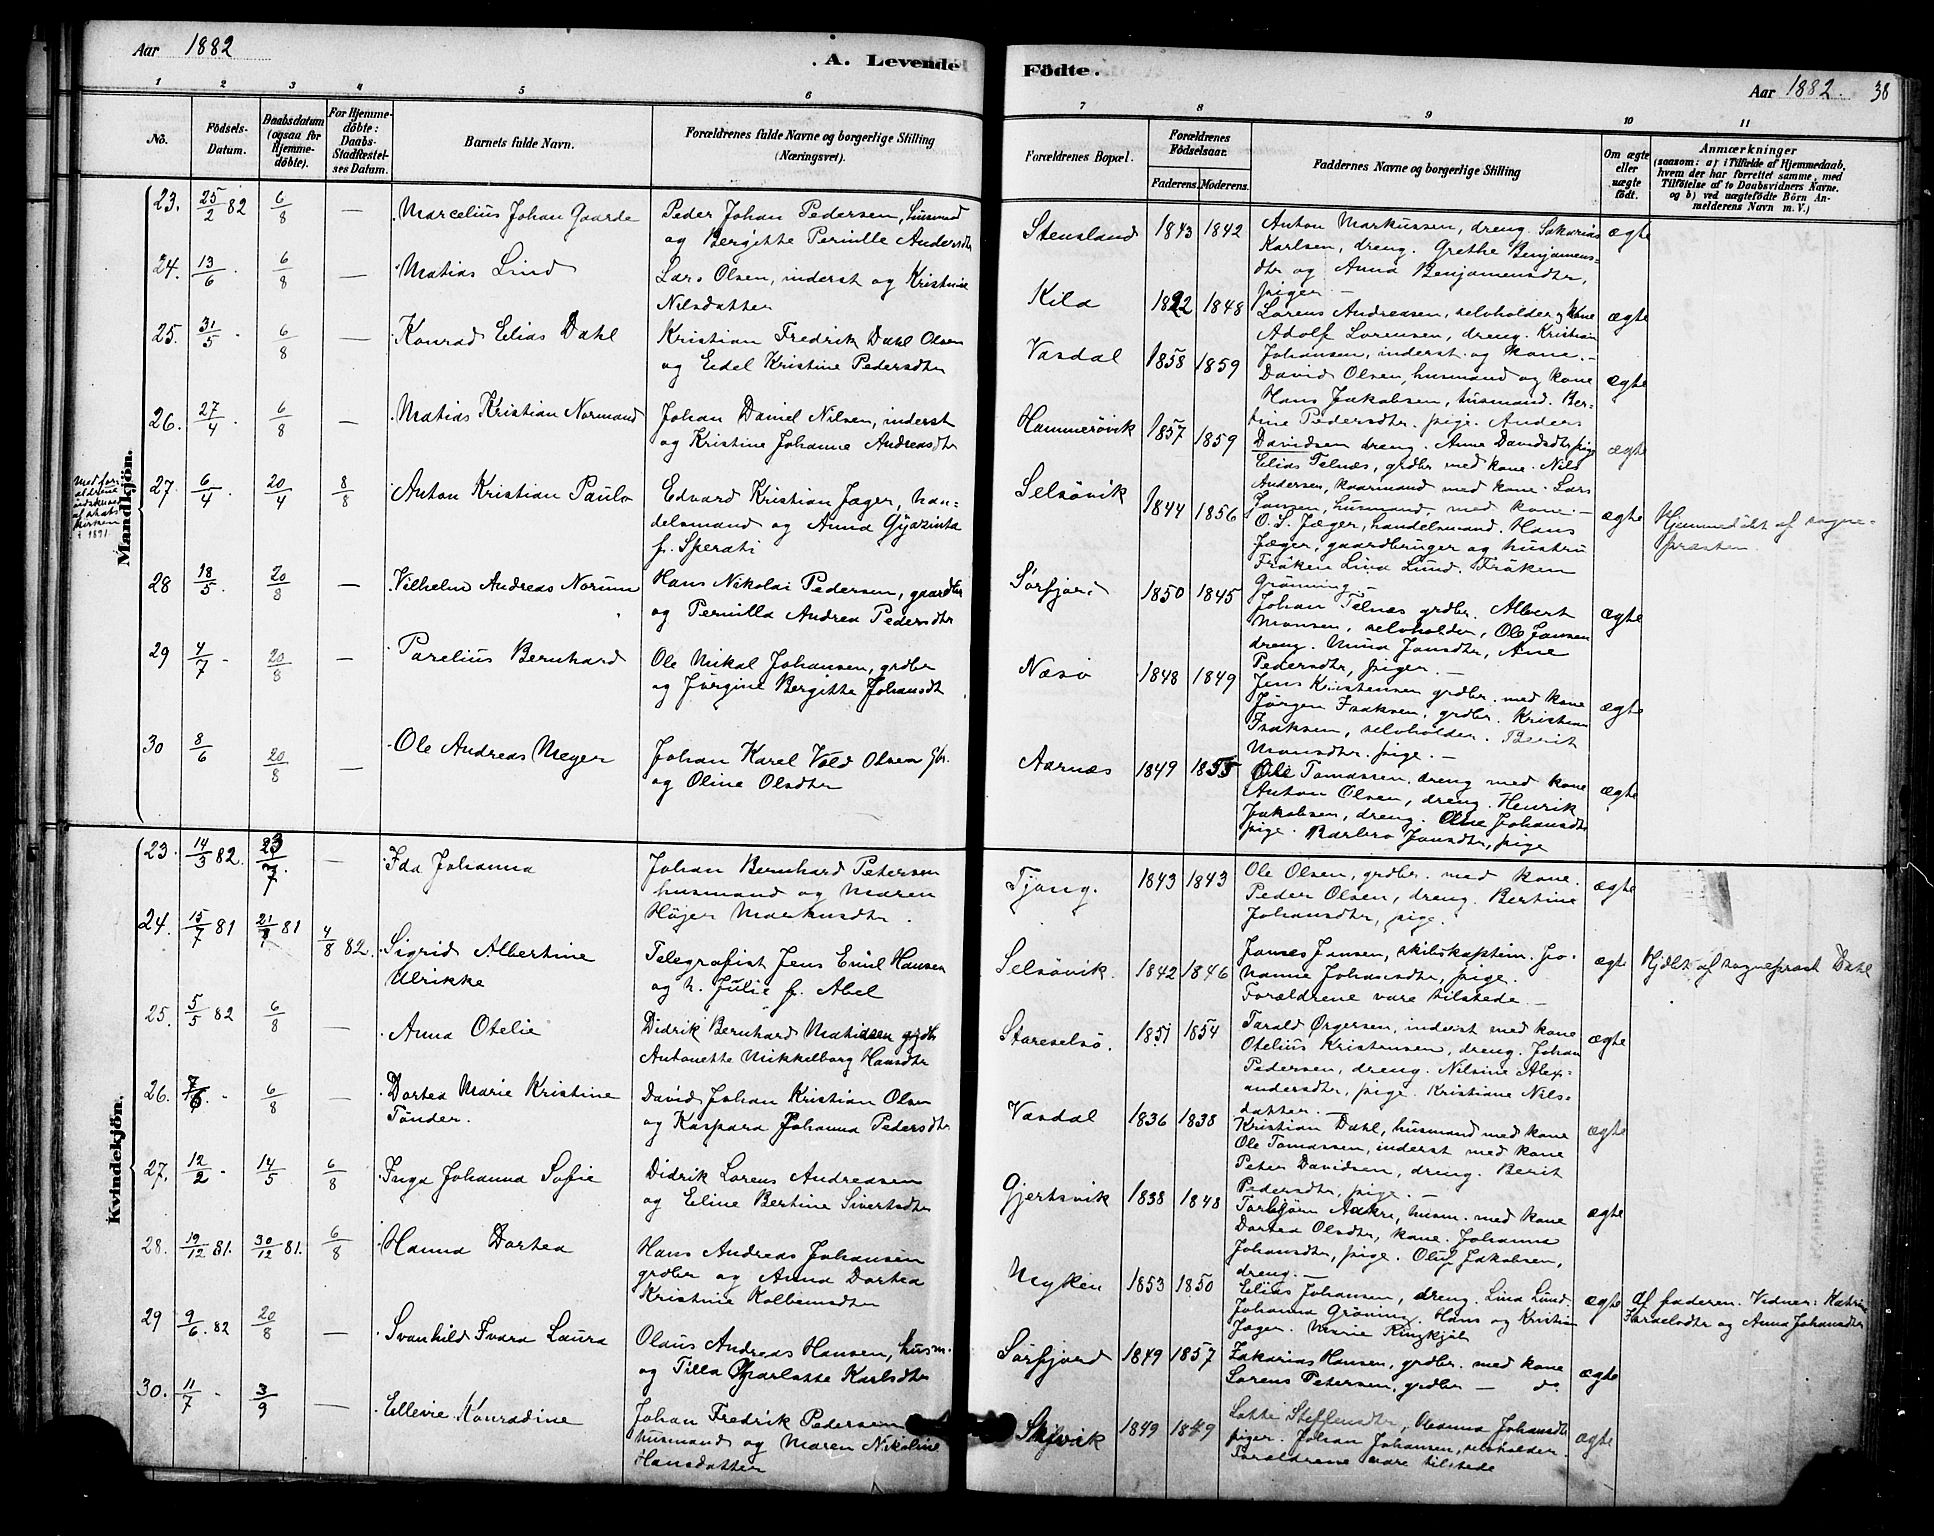 Aar 1882
A. Levende
1 2 3 4 5 6
No.
Födsels-
Datum.
Daabsdatum
(ogsaa for
Hjemme-
döbte).
For Hjemme-
döbte:
Daabs-
Stadfæstel-
ses Datum.
Barnets fulde Navn.
Forældrenes fulde Navne og borgerlige Stilling
(Næringsvei).
Mandkjön.
23. 25/2 82 6/8 — Marcelius Johan Gaarde Peder Johan Pedersen, husmd
og Bergitte Pernille Andersdtr
24. 13/6 6/8 — Matias Lind Lars Olsen, inderst og Kristine
Nilsdatter
25. 31/5 6/8 — Konrad Elias Dahl Kristian Fredrik Dahl Olsen
og Edel Kristine Pedersdtr
26. 27/4 6/8 — Matias Kristian Normand Johan Daniel Nilsen, inderst
og Kristine Johanna Andreasdtr
27. 6/4 20/4 8/8 Anton Kristian Paulo Edvard Kristian Jæger, han-
delsmand og Anna Gydzinta
f. Sperati
28 18/5 20/8 — Vilhelm Andreas Norum Hans Nikolai Pedersen, gaardbr
og Pernilla Andrea Pedersdtr
29 4/7 20/8 — Parelius Bernhard Ole Mikal Johansen, grdbr
og Jürgine Bergitta Johansdt
30 8/6 20/8 — Ole Andreas Meyer Johan Karel Vold Olsen
og Oline Olsdtr
Kvindekjön.
23. 14/5 82. 23/7 — Ida Johanna Johan Bernhard Petersen
husmand og Maren
Højer Markusdtr.
24. 15/7 81 21/9 81 4/8 82. Sigrid Albertine
Ulrikke Telegrafist Jens Emil Hansen
og h. Julie f. Abel
25. 5/5 82 6/8 — Anna Otelie Didrik Bernhard Matiasen grdbr
Antonette Mikkelborg Hansdtr
26. 7/6 6/8 — Dortea Marie Kristine
Tønder. David Johan Kristian Olsen
og Kaspara Johanna Pedersdtr
27. 12/2 14/5 6/8 Inga Johanna Sofie Didrik Lorens Andreasen
og Eline Bertine Sivertsdtr
28. 19/12 81. 30/12 81. 6/8 Hanna Dortea Hans Andreas Johansen
grdbr og Anna Dortea
Kristine Kolbensdtr
29 9/6 82 20/8 — Svanhild Ivara Laura Olaus Andreas Hansen, husm.
og Tilla Charlotte Karlsdtr
30. 11/7 3/9 — Ellevie Konradine Johan Fredrik Pedersen
husmand og Maren Nikoline
Hansdatter
Födte.
Aar 1882. 38
7 8 9 10 11
Forældrenes Bopæl.
Forældrenes
Födselsaar.
Faderens. Moderens.
Faddernes Navne og borgerlige Stilling
Om ægte
eller
uægte
födt.
Anmærkninger
(saasom: a) i Tilfælde af Hjemmedaab,
hvem der har forrettet samme, med
Tilföielse af to Daabsvidners Navne.
og b) ved uægtefödte Börn An-
melderens Navn m. V.)
Stensland 1843 1842 Anton Markussen, dreng. Sakarias
Karlsen, dreng. Grethe Benjamens-
dtr og Anna Benjamensdtr,
piger. — ægte
Kila 1822 1848 Lorens Andreasen, selvholder og kone
Adolf Lorensen, dreng. Kristian
Johansen, inderst og kone. — ægte
Vasdal 1858 1859 David Olsen, husmand og kone
Hans Jakobsen, husmand. Ber-
tine Pedersdtr. pige. Anders
Davidsen dreng. Anne Davidsdtr pige ægte
Hammerövik 1857 1859 Elias Telnæs, grdbr med kone. Nils
Andersen, kaarmand med kone. Lars
Jansen, husmand, med kone. — ægte
Selsövik 1844 1856 O. S. Jæger, handelsmand. Hans
Jæger, gaardbruger og hustru
Frøken Lina Lund. Frøken
Grønning — ægte Hjemmedøbt af sogne-
præsten
Sørfjord 1850 1845 Johan Telnæs grdbr. Albert
Monsen, selvholder, Ole Jansen
dreng. Mina Jansdtr, Ane
Pedersdtr, piger. — ægte
Næsö 1848 1849 Jens Kristensen grdbr. med kone
Jørgen Isaksen, grdbr. Kristian
Isaksen, selvholder. Berit
Monsdtr. pige. — ægte
Aarnæs 1849 1855 Ole Tomassen, dreng med kone
Anton Olsen, dreng. Henrik
Jakobsen, dreng. Oline Johansdtr
pige. Barbro Jansdtr, pige ægte
Tjong. 1843 1843 Ole Olsen, grdbr. med kone.
Peder Olsen, dreng. Bertine
Johansdtr, pige. ægte
Selsövik. 1842 1846 James Jansen, skibskaptein. Jo-
hanne Johansdtr, pige.
Forældrene vare tilstede. — ægte Hjdøbt af sognepræst Dahl
Storeselsö. 1851 1854 Tarald Ørgersen, inderst med kone
Otelius Kristensen, dreng. Johan
Pedersen, dreng. Nilsine Alex-
andersdtr, pige. Kristiane Nils-
datter. — ægte
Vasdal 1836 1838 Kristian Dahl, husmand med kone
Ole Tomassen, inderst med kone
Peter Davidsen, dreng. Berit
Pedersdtr, pige. — ægte
Gjertsvik 1838 1848 Torbjørn Aakre, husm. med kone
Dortea Olsdtr, kone. Johanna
Johansdtr, pige. Oluf Jakobsen,
dreng. — ægte
Myken 1853 1850 Elias Johansen, dreng. Lina Lund.
Johanna Grøning. Hans og Kristian
Jæger. Marie Ringkjøb ægte af faderen. Vidner: Katrine
og Anna Johansdtr
Sørfjord 1849 1857 Zakarias Hansen, grdbr. med kone
Lorens Petersen, grdbr — do ægte
Skjvik 1849 1849 Lotte Steffensdtr, Oleanna Johansdtr
piger. Johan Johansen, selvholder.
Forældrene vare tilstede ægte